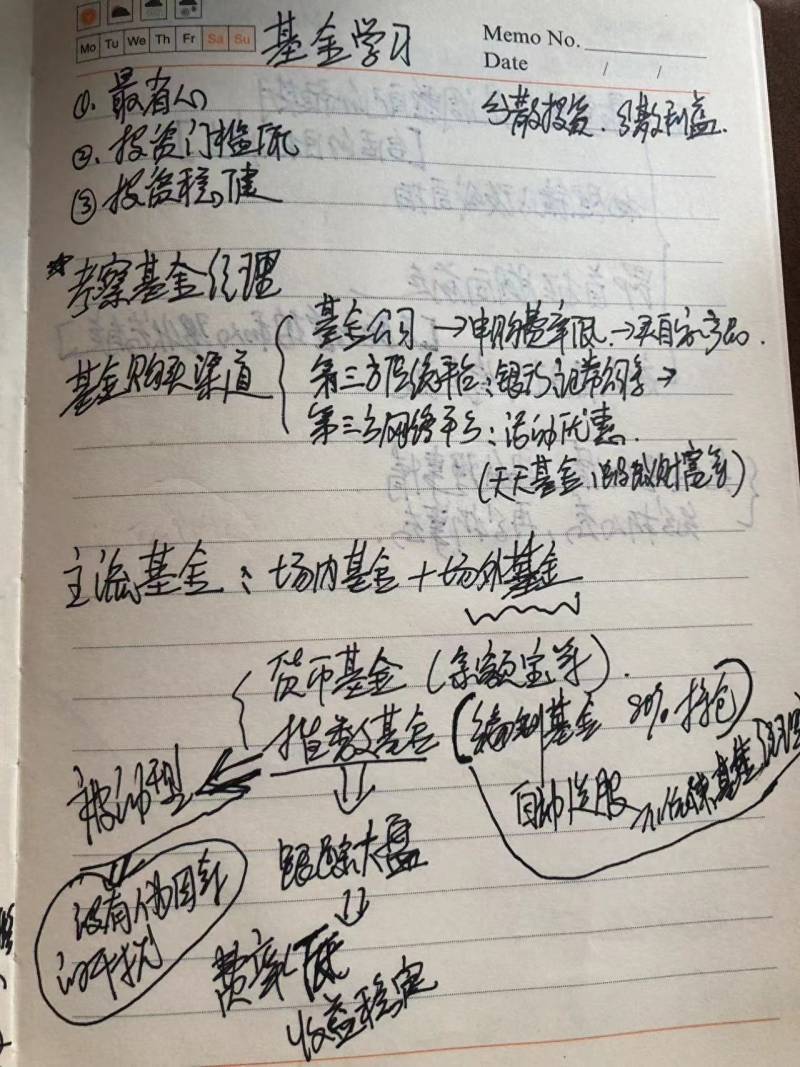 Mo Tu We Th Fr Sa Su
基金学习
Memo No.
Date / /
①. 最省心
分散投资、分散利益.
②. 投资门槛低
③ 投资稳健
*考察基金经理
基金购买渠道
基金公司→申购费率低→买自家产品.
第三方传统平台:银行证券公司等→
第三方网络平台:活动优惠.
(天天基金、蚂蚁财富等)
主流基金:场内基金+场外基金
货币基金(余额宝等).
指数基金
(编制基金 80%持仓)
被动型
自动
基金经理
跟踪大盘
没有人为因素
的干扰
费率低
收益稳定